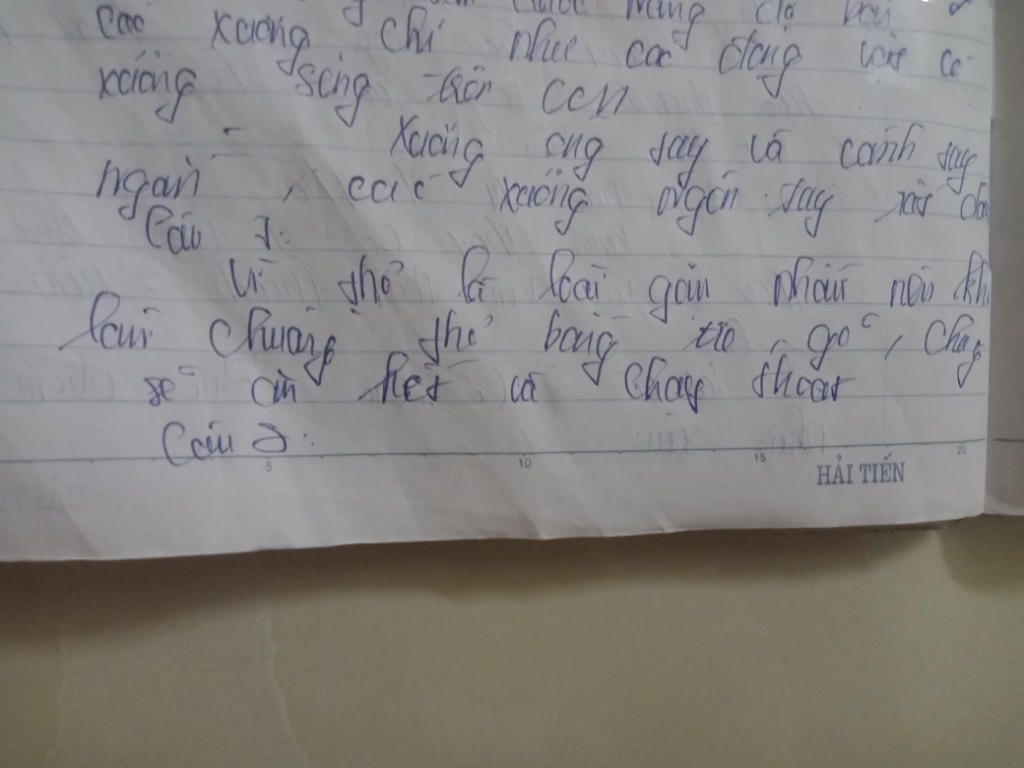 các xương chi như các động vật có
xương sống trên cạn
- Xương ống tay và cánh tay
ngắn, các xương ngón tay rất dài
Câu 7:
Vì thỏ là loài gặm nhấm nên khi
làm chuồng thỏ bằng tre, gỗ, chúng
sẽ cắn hết và chạy thoát
Câu 2:
5 10 15 20
HẢI TIẾN